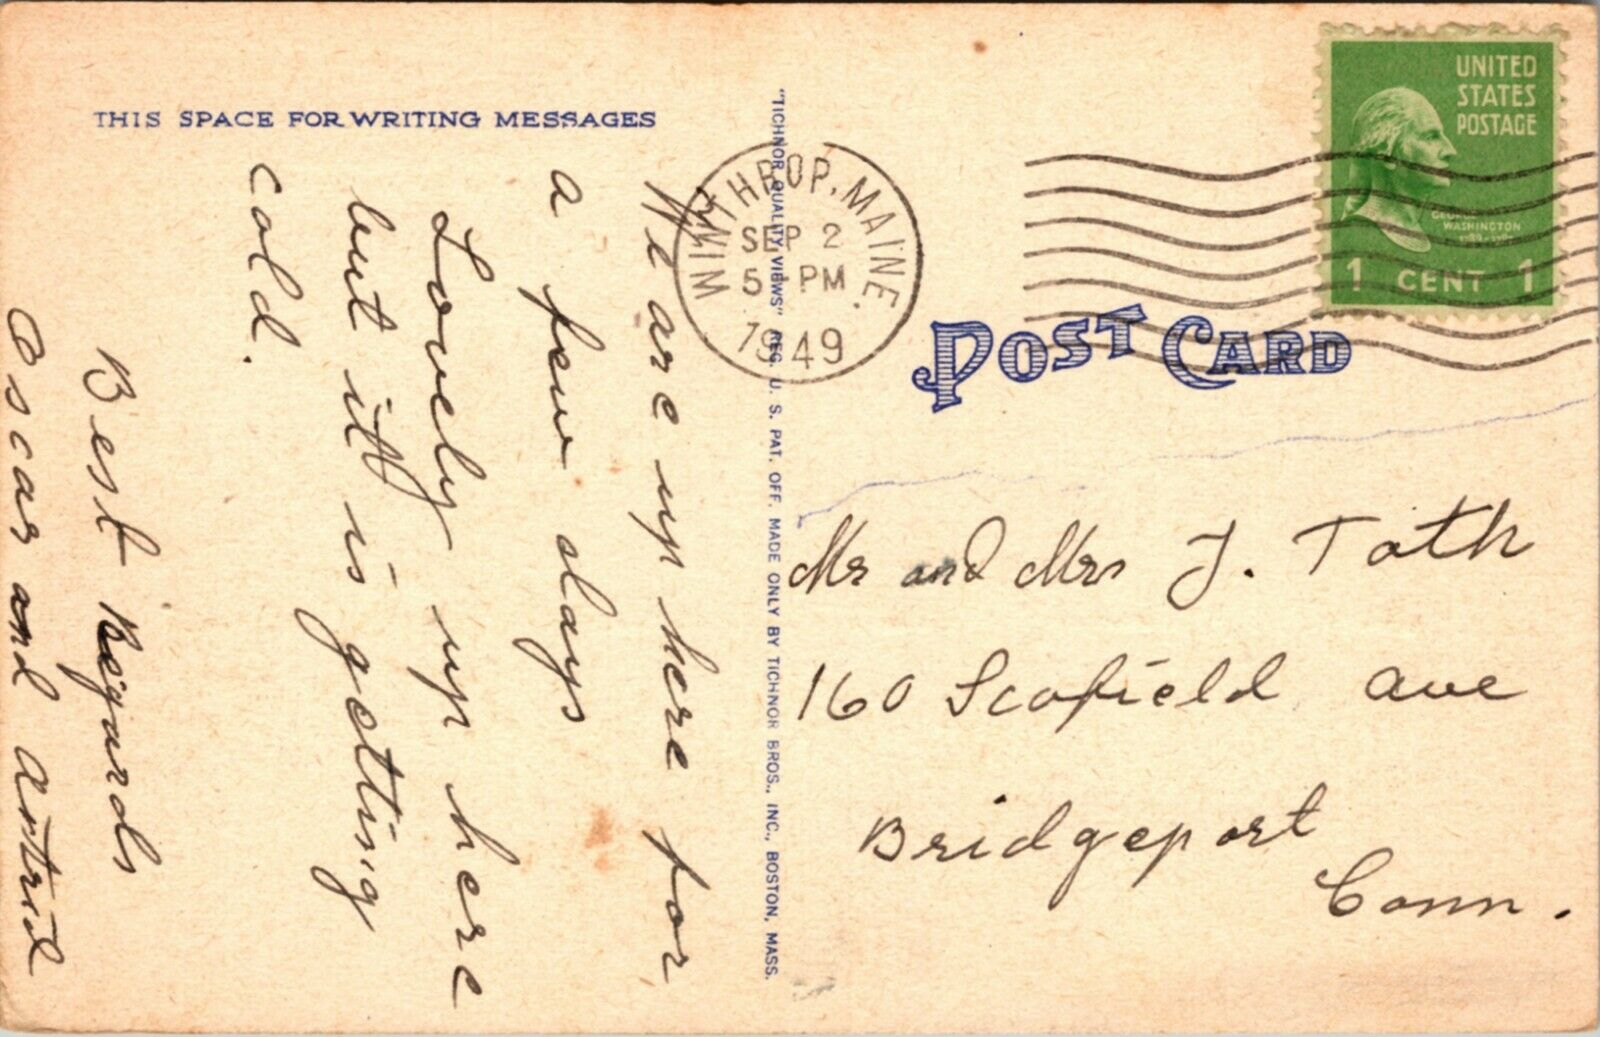 THIS SPACE FOR WRITING MESSAGES
We are up here for
a few days
Lovely up here
but it is getting
cold.
Best Regards
Oscar and Astrid
"TICHNOR QUALITY VIEWS" REG. U. S. PAT. OFF. MADE ONLY BY TICHNOR BROS., INC., BOSTON, MASS.
WINTHROP, MAINE.
SEP 2
5 PM
1949
UNITED
STATES
POSTAGE
GEORGE
WASHINGTON
1 CENT 1
POST CARD
Mr and Mrs J. Toth
160 Scofield Ave
Bridgeport
Conn.